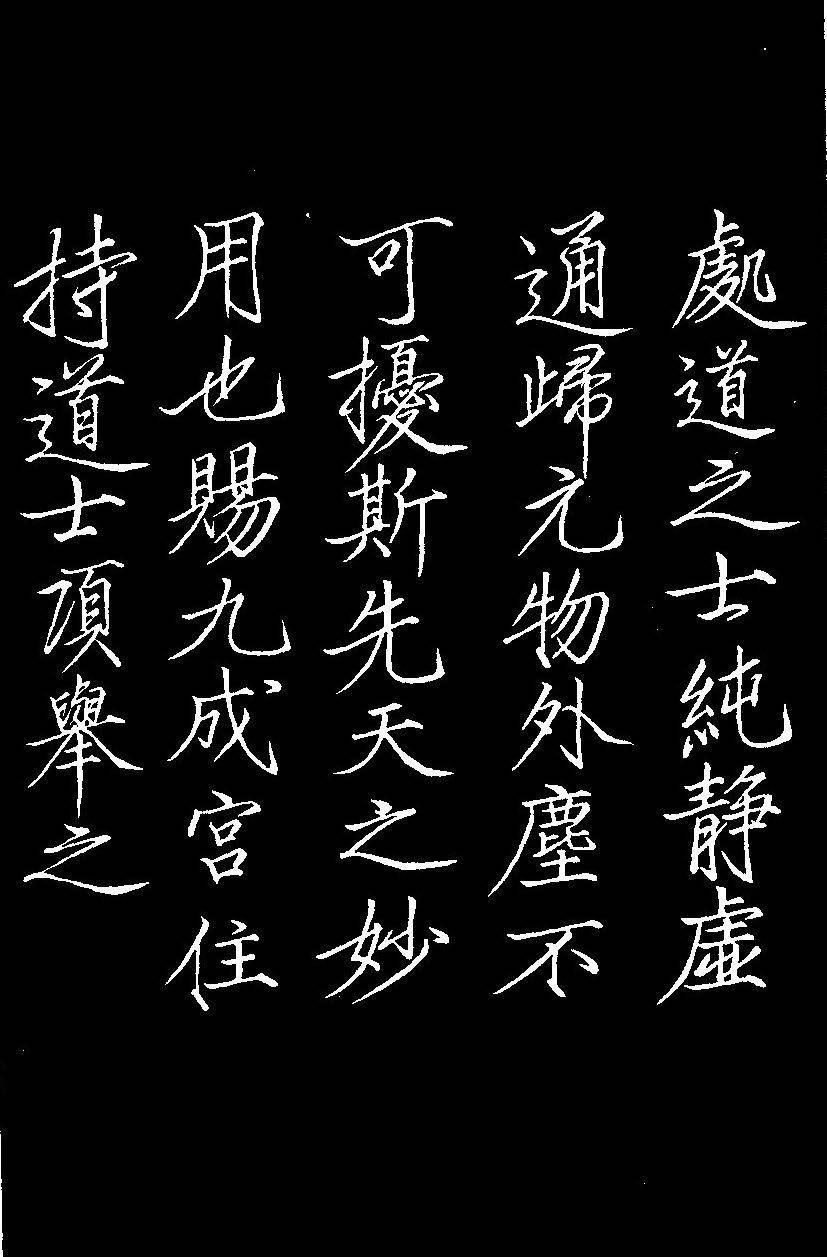 處道之士純静虛
通歸元物外塵不
可擾斯先天之妙
用也賜九成宮住
持道士項舉之